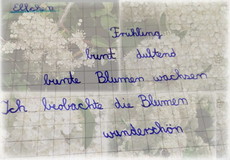 Frühling
bunt duftend
bunte Blumen wachsen
Ich beobachte die Blumen
wunderschön